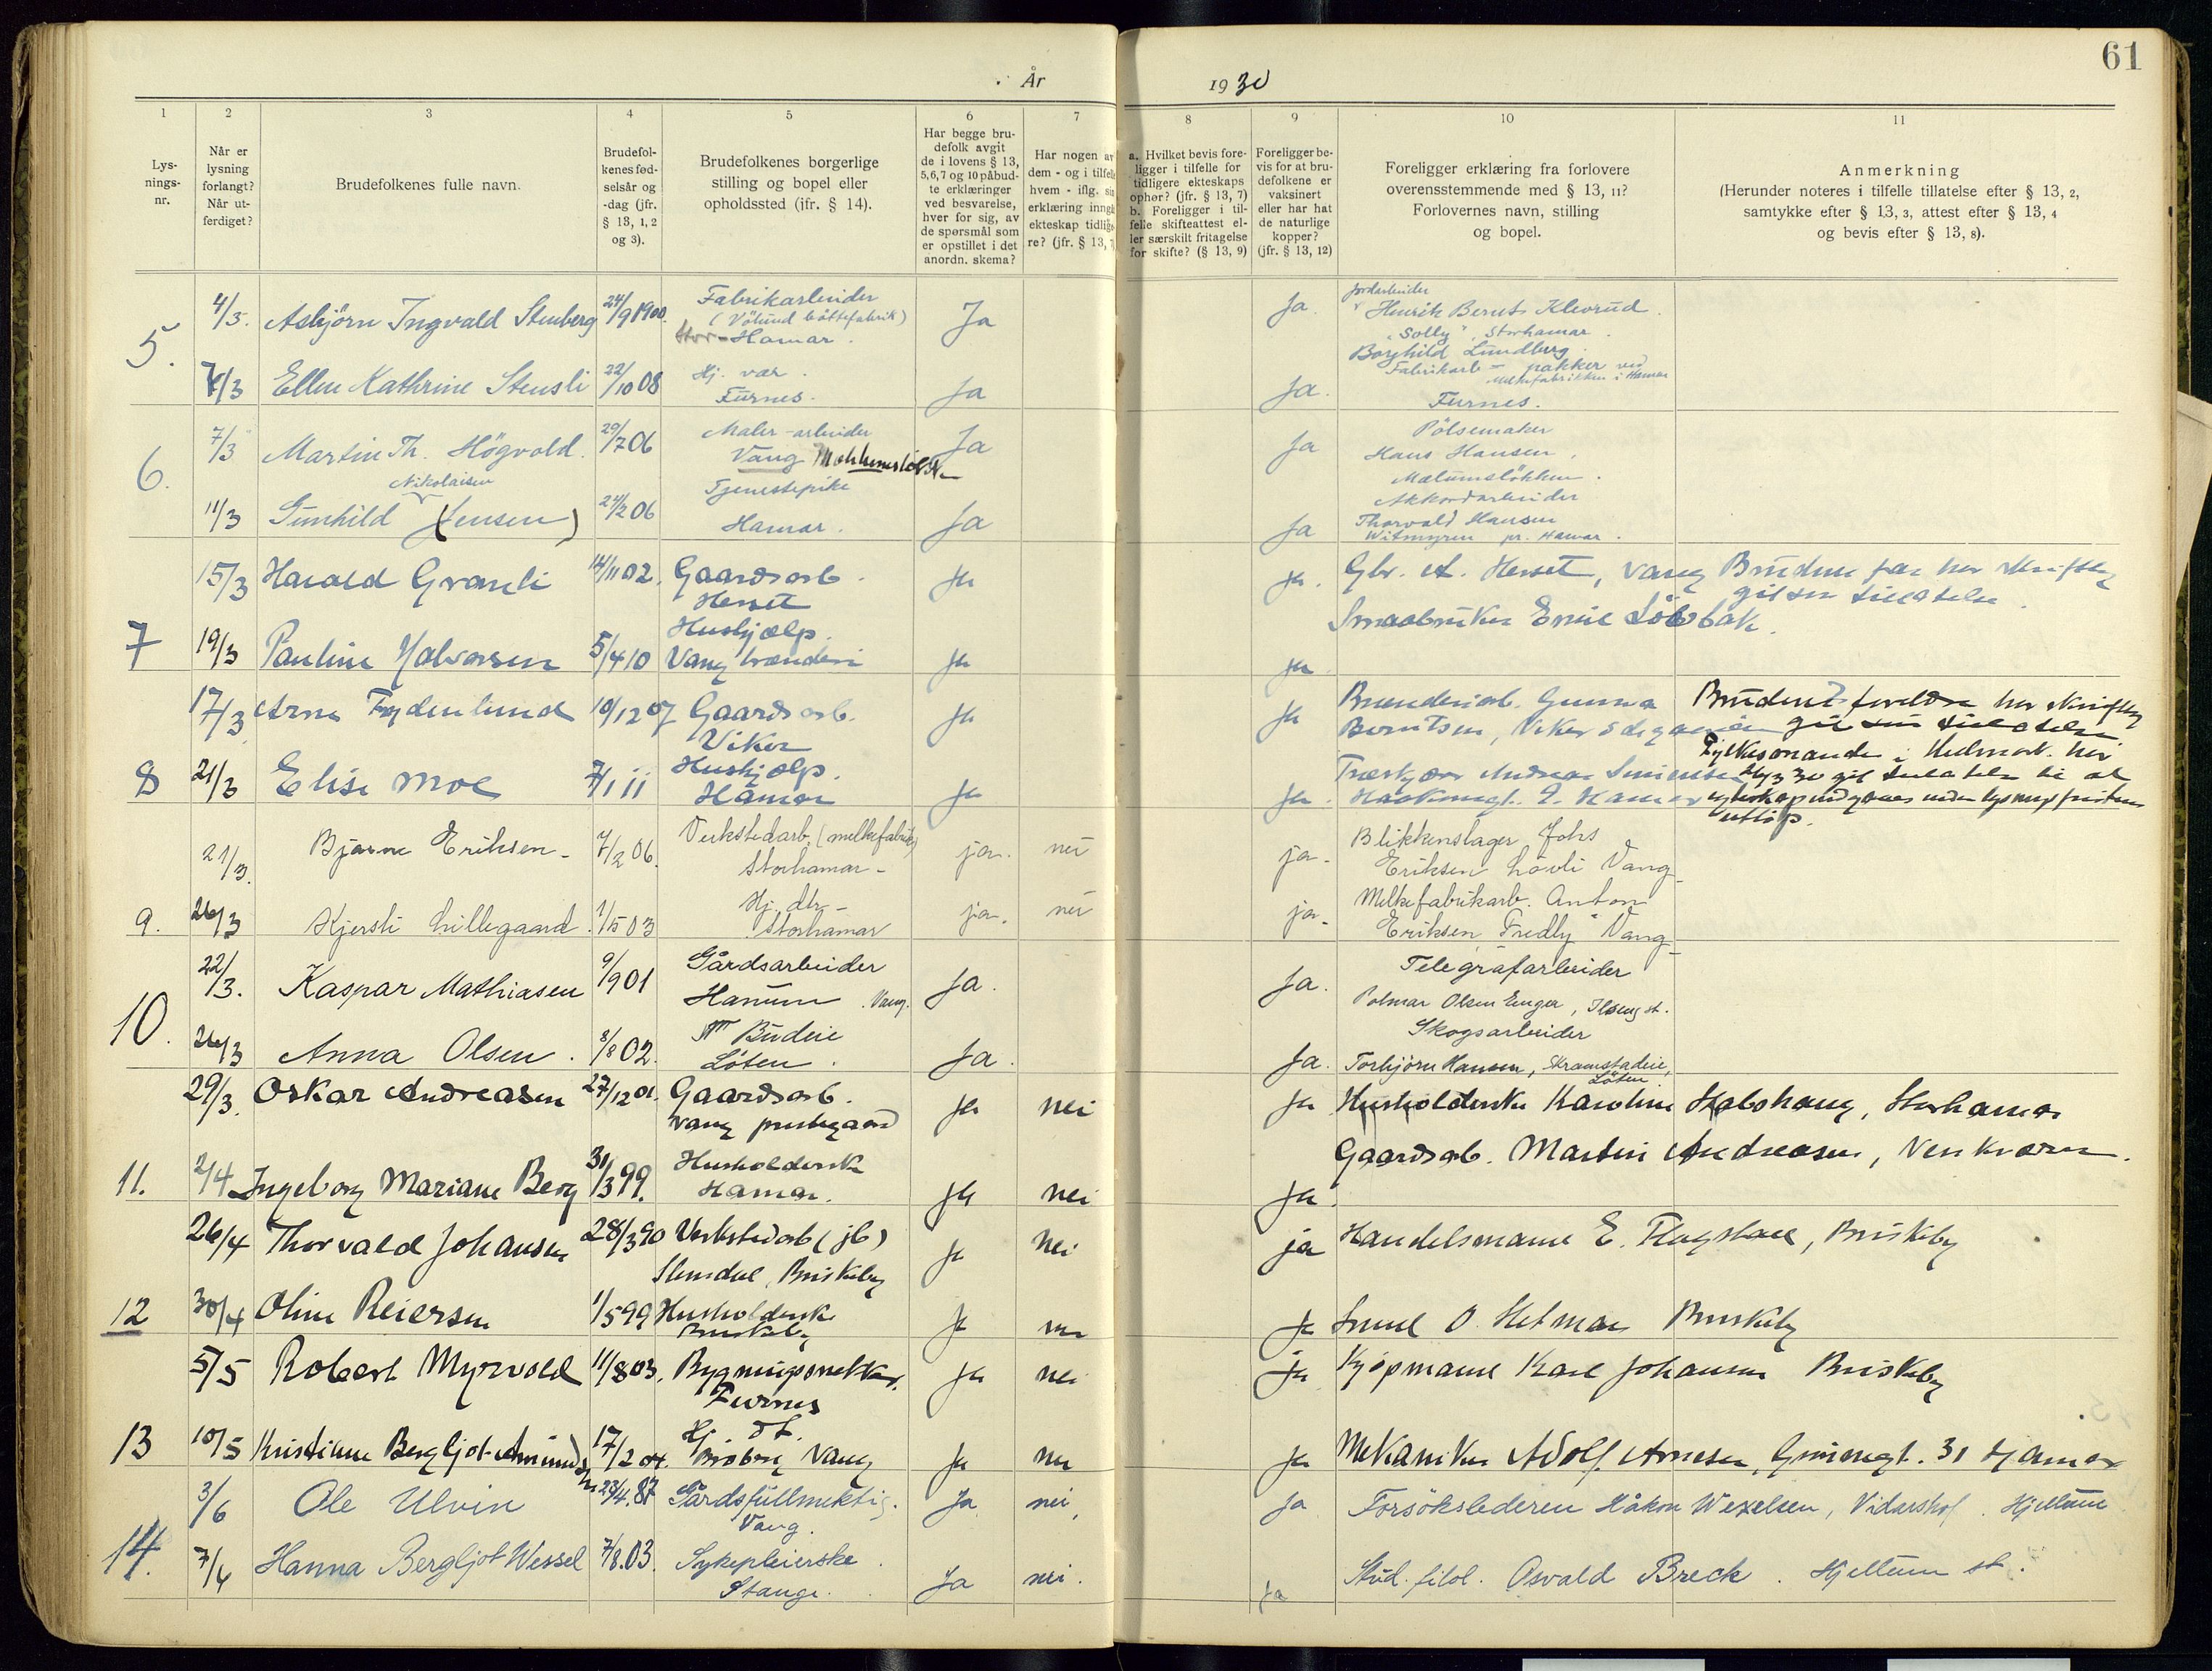 61
År 1930
1 2 3 4 5 6 7 8 9 10 11
Lys-
nings-
nr.
Når er
lysning
forlangt?
Når ut-
ferdiget?
Brudefolkenes fulle navn.
Brudefol-
kenes fød-
selsår og
-dag (jfr.
§ 13, 1, 2
og 3).
Brudefolkenes borgerlige
stilling og bopel eller
opholdssted (jfr. § 14).
Har begge bru-
defolk avgit
de i lovens § 13,
5, 6, 7 og 10 påbud-
te erklæringer
ved besvarelse,
hver for sig, av
de spørsmål som
er opstillet i det
anordn. skema?
Har nogen av
dem - og i tilfelle
hvem - iflg. sin
erklæring inngåt
ekteskap tidlige-
re? (jfr. § 13, 7)
a. Hvilket bevis fore-
ligger i tilfelle for
tidligere ekteskaps
ophør? (jfr. § 13, 7)
b. Foreligger i til-
felle skifteattest el-
ler særskilt fritagelse
for skifte? (§ 13, 9)
Foreligger be-
vis for at bru-
defolkene er
vaksinert
eller har hat
de naturlige
kopper?
(jfr. § 13, 12)
Foreligger erklæring fra forlovere
overensstemmende med § 13, 11?
Forlovernes navn, stilling
og bopel.
Anmerkning
(Herunder noteres i tilfelle tillatelse efter § 13, 2,
samtykke efter § 13, 3, attest efter § 13, 4
og bevis efter § 13, 8).
5.
4/3. Asbjörn Ingvald Stenberg 24/9 1900. Fabrikarbeider
(Völund bøttefabrik)
Stor-Hamar. Ja Ja. Jordarbeider
Henrik Bernts Klevrud.
"Solly" Storhamar.
7/3 Ellen Kathrine Stensli 22/10 08 Hj. vær.
Furnes. Ja Ja. Borghild Lundberg.
Fabrikarb - pakker ved
Melkefabrikken i Hamar
Furnes.
6.
7/3 Martin Th. Högvold. 29/7 06 Maler-arbeider
Vang Ja Ja Pölsemaker
Hans Hansen,
Mælumslökken.
11/3 Gunhild Nikolaisen (Jensen) 24/2 06 Tjenestepike
Hamar. Ja Ja Akkordarbeider
Thorvald Hansen
Witmyren pr. Hamar.
7
15/3 Harald Granli 14/11 02. Gaardsarb.
Herset ja ja. Gbr. A. Herset, Vang Brudens far har skriftlig
git sin tillatelse.
19/3 Pauline Halvorsen 5/4 10 Hushjælp.
Vang brænderi ja ja Smaabruker Emil Löbbak.
8
17/3 Arne Frydenlund 10/12 07 Gaardsarb.
Viker ja ja Brænderiarb. Gunnar
Berntsen, Viker ödegaarden Brudens foreldre har skriftlig
git sin tillatelse.
21/3 Elise Moe 7/1 11 Hushjælp.
Hamar ja ja. Træskjærer Andreas Simensen
Haakonsgt. 9. Hamar Fylkesmanden i Hedmark har
git tillatelse til at
egteskap indgaaes inden lysningsfristens
utlöp.
9.
21/3. Bjarne Eriksen- 7/2 06. Verkstedarb. (melkefabrik)
Storhamar- ja. nei ja- Blikkenslager Johs
Eriksen Løvli Vang-
26/3 Kjersti Lillegaard. 1/5 03 Hj. dtr-
Storhamar ja. nei ja- Melkefabrikarb. Anton
Eriksen "Fredly" Vang-
10.
22/3. Kaspar Mathiasen 9/9 01 Gårdsarbeider
Hanum. Vang. Ja. Ja. Telegrafarbeider
Polmar Olsen Enger, Ilseng st.
26/3 Anna Olsen. 8/8 02. Budeie
Löten. Ja. Ja. Skogsarbeider
Torbjörn Hansen,
Löten.
11.
29/3. Oskar Andreasen 27/12 01. Gaardsarb.
Vang prestegaard ja nei ja Husholderske Karoline Stabshaug, Storhamar
2/4 Ingeborg Mariane Berg 31/3 99. Husholderske
Hamar. ja nei ja. Gaardsarb. Martin Andreasen, Venkværn.
12
26/4 Thorvald Johansen 28/3 90 Verkstedarb (jb)
Stensdal, Briskeby ja nei ja Handelsmann E. Flagstad, Briskeby
30/4 Oline Reiersen 1/5 99 Husholderske
Briskeby ja nei ja Smed O. Hetmar Briskeby
13
5/5 Robert Myrvold 11/8 03. Bygningssnekker.
Furnes ja nei ja Kjøpmann Karl Johansen Briskeby
10/5 Kristiane Bergljot Amundsen 17/2 04. Hj. dt.
Broberg Vang ja nei ja Mekaniker Adolf Arnesen, Grönnegt. 31 Hamar
14.
3/6 Ole Ulvin 23/4. 87 Gårdsfullmektig.
Vang. Ja nei, Ja Forsökslederen Håkon Wexelsen, Vidarshof. Hjellum
7/6 Hanna Bergljot Wessel 7/8. 03. Sykepleierske.
Stange. Ja nei. Ja Stud. filol. Osvald Breck. Hjellum st.